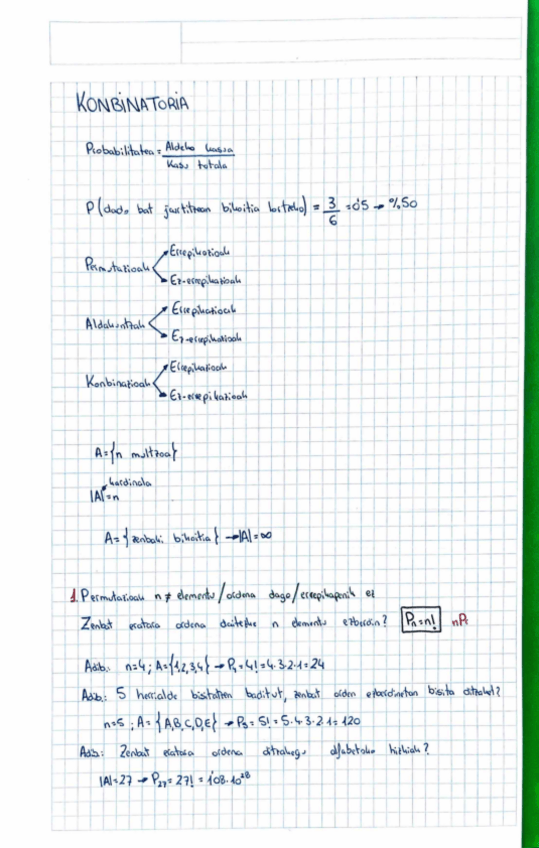 KONBINATORIA
Probabilitatea = Aldeko kasua
Kasu totala
P(dado bat jaurtitzean bikoitia lortzeko) = 3/6 = 0'5 → %50
Permutazioak
Errepikatzioak
Ez-errepikatzioak
Aldakuntzak
Errepikatzioak
Ez-errepikatzioak
Konbinazioak
Errepikatzioak
Ez-errepikatzioak
A={n multzoa}
kardinala
|A|=n
A={zenbaki bikoitia} → |A|=∞
1. Permutazioak n ≠ elementu/ordena dago/errepikapenik ez
Zenbat eratara ordena daitezke n elementu ezberdin? Pn=n! nPr
Adib.: n=4; A={1,2,3,4} → P4=4!=4·3·2·1=24
Adib.: 5 herrialde bisitatzen baditut, zenbat orden ezberdinetan bisita ditzaket?
n=5; A={A,B,C,D,E} → P5=5!=5·4·3·2·1=120
Adib: Zenbat eratara ordena ditzakegu alfabetoko hizkiak?
|A|=27 → P27=27!=1'08·10^28